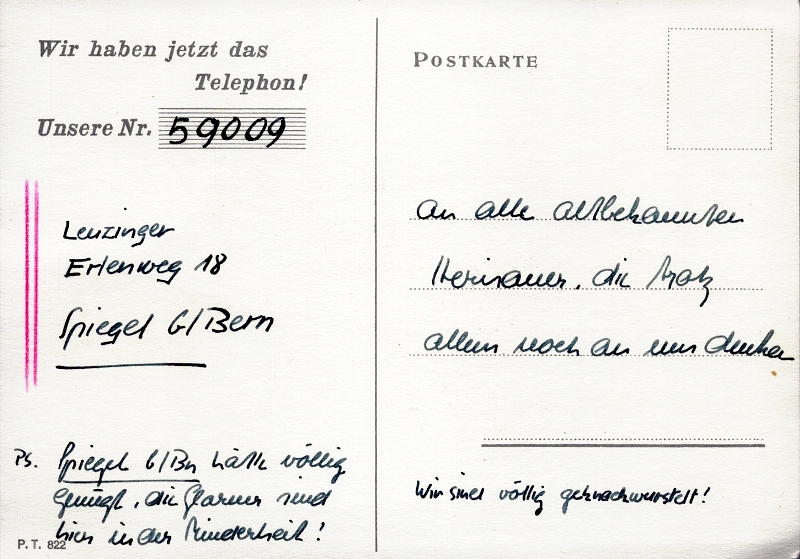 Wir haben jetzt das
Telephon!
Unsere Nr. 59009
Leuzinger
Erlenweg 18
Spiegel b/Bern
Ps. Spiegel b/Bn hätte völlig
genügt, die Glarner sind
hier in der Minderheit!
P.T. 822
POSTKARTE
An alle altbekannten
Herisauer, die trotz
allem noch an uns denken
Wir sind völlig geknackwurstelt!